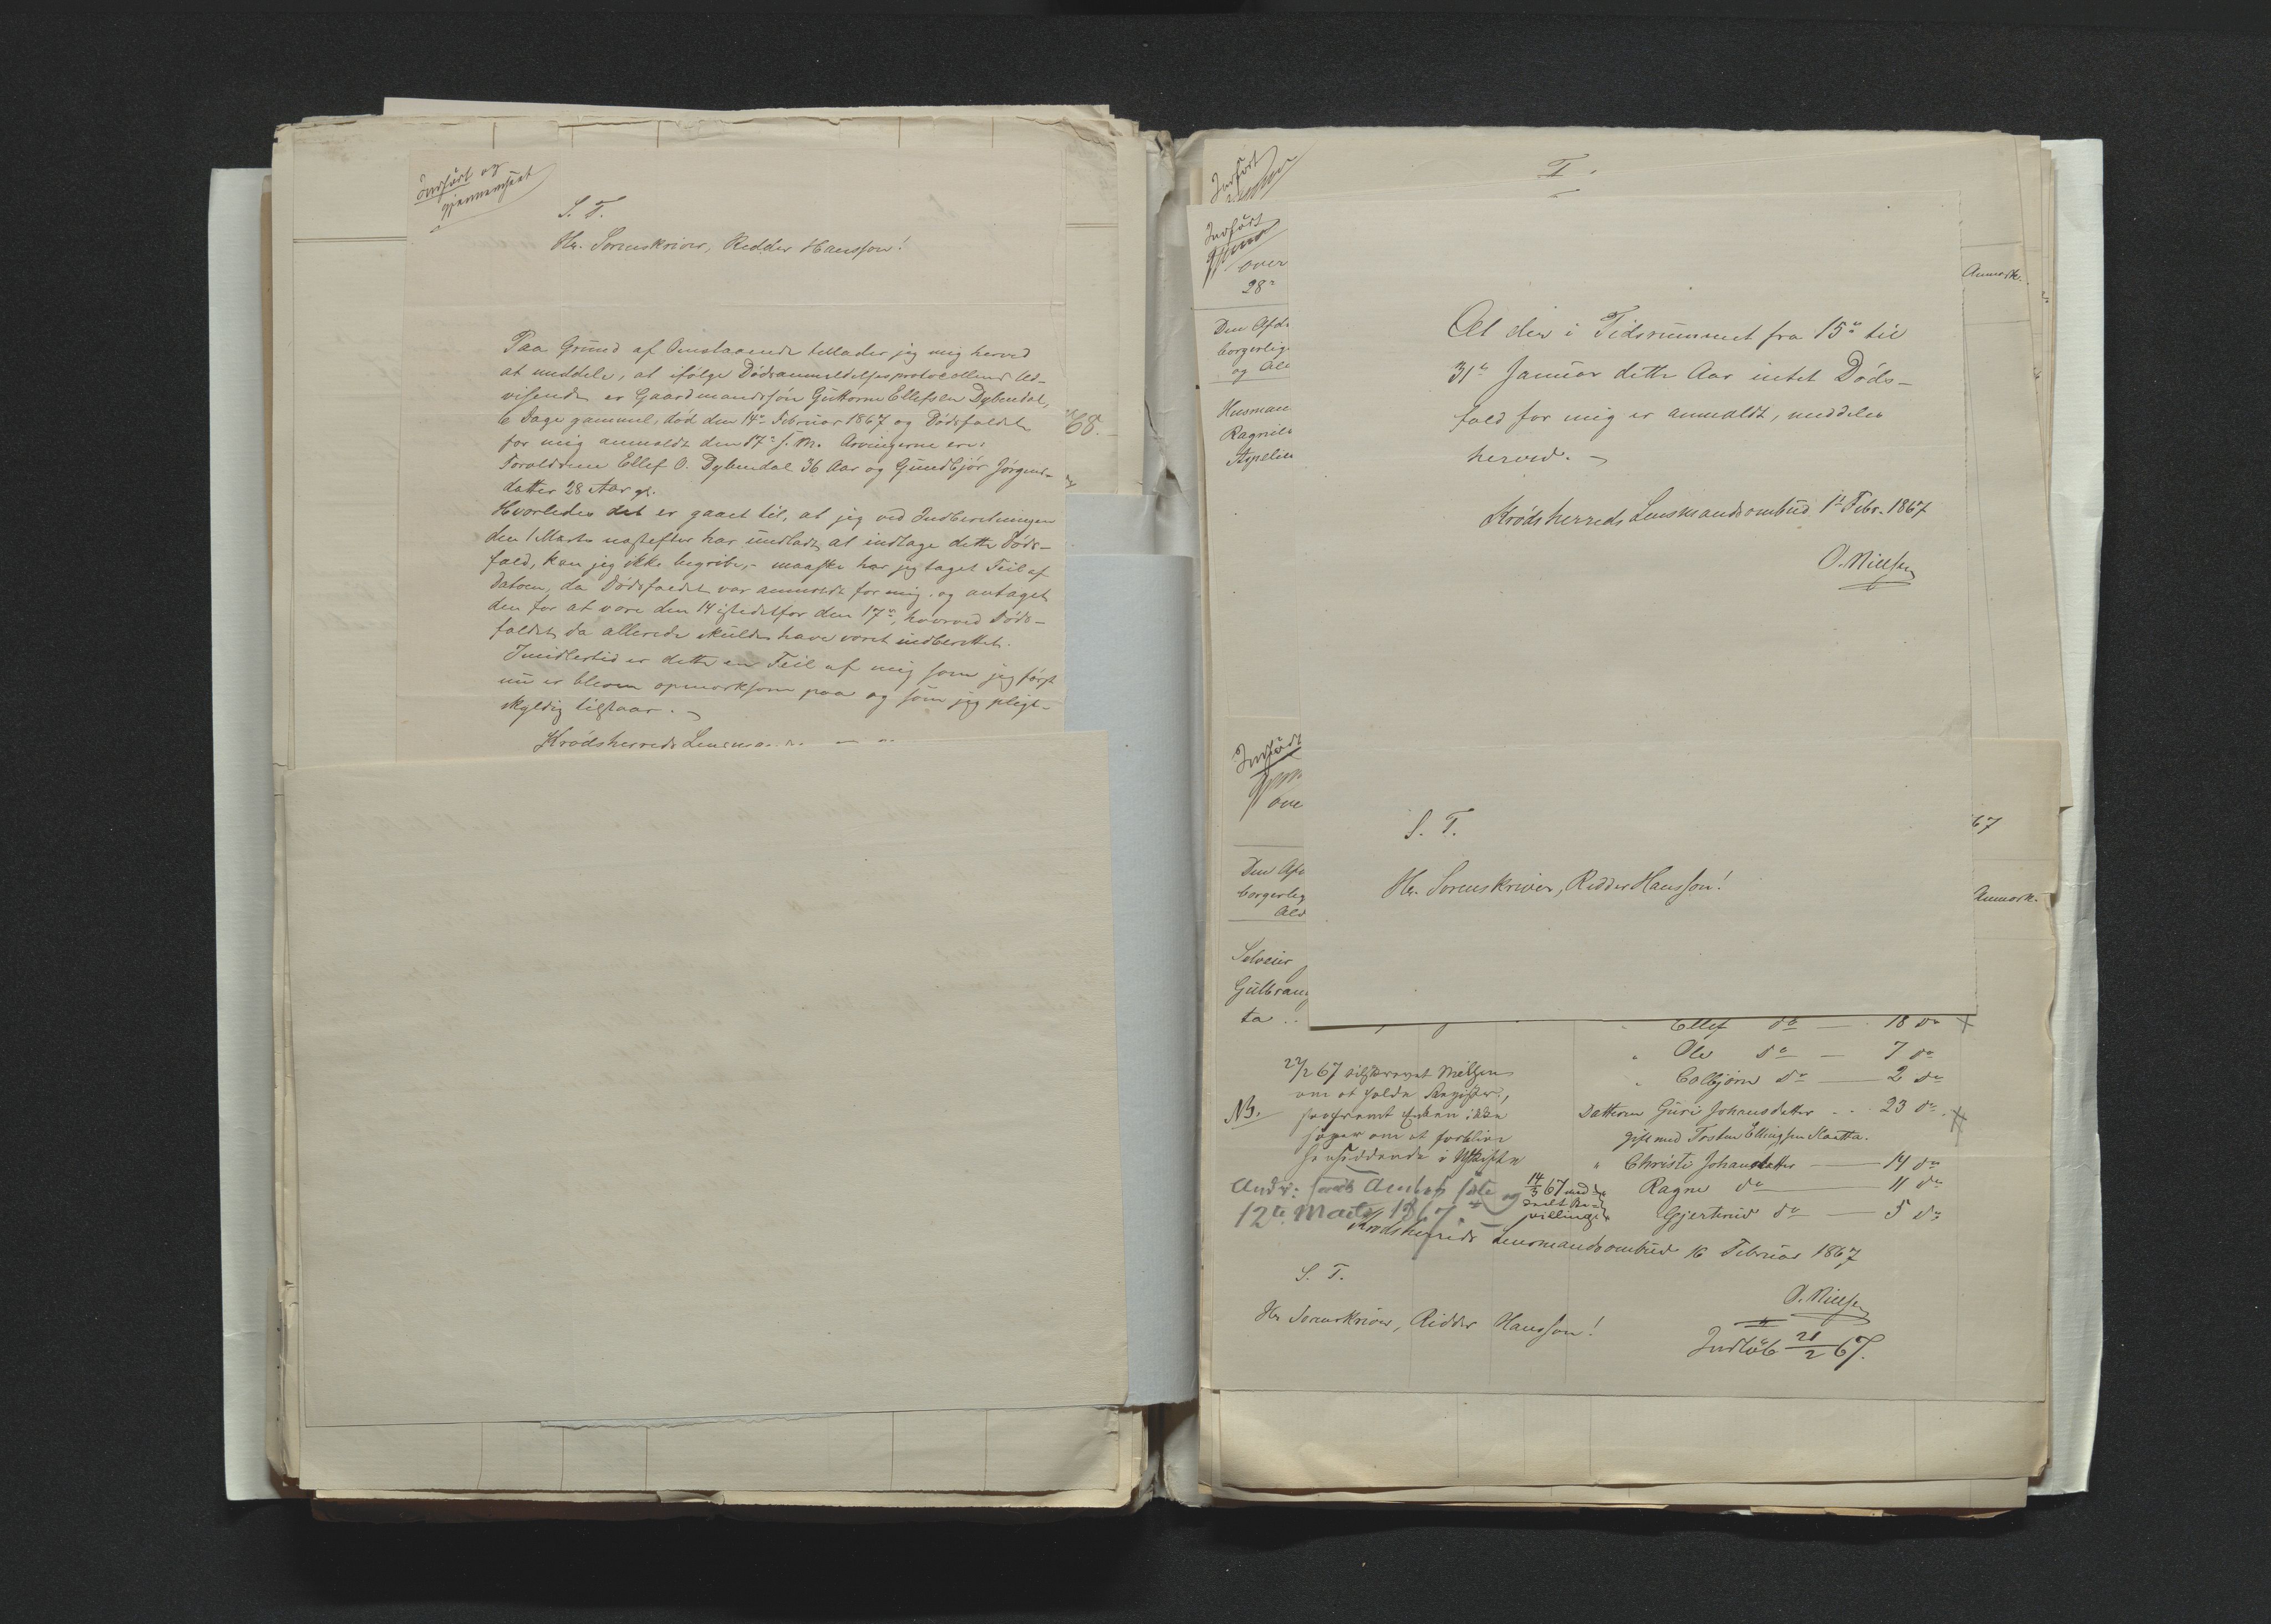 Indført og
gjennemseet
S. T.
Hr. Sorenskriver, Ridder Hansson!
Paa Grund af Omstaaende tillader jeg mig herved
at meddele, at ifølge Dødsanmeldelsesprotocollens Ud-
visende er Gaardmandssøn Guttorm Ellefsen Dybendal,
6 Dage gammel, død den 14de Februar 1867 og Dødsfaldet
for mig anmeldt den 17de s. M. Arvingerne ere:
Forældrene Ellef O. Dybendal 36 Aar og Gundbjør Jørgens-
datter 28 Aar gl.
Hvorledes det er gaaet til, at jeg ved Indberetningen
den 1 Marts næstefter har undladt at indtage dette Døds-
fald, kan jeg ikke begribe, - maaske har jeg taget Feil af
Datoen, da Dødsfaldet var anmeldt for mig, og antaget
den for at være den 14 istedetfor den 17de, hvorved Døds-
faldet da allerede skulde have været indberettet.
Imidlertid er dette en Feil af mig som jeg først
nu er bleven opmærksom paa og som jeg pligt-
skyldig tilstaar.
Krødsherreds
68.
I.
Indført
Indført
over
28de
Den Afdø
borgerlig
og Al
Husman
Ragnil
Aspelie
Anmærk.
At der i Tidsrummet fra 15de til
31te Januar dette Aar intet Døds-
fald for mig er anmeldt, meddeles
herved.
Krødsherreds Lensmandsombud 1te Febr. 1867
O. Nielsen
S. T.
Hr. Sorenskriver, Ridder Hansson!
Indført
ove
67
Den Afd
borgerlig
Ald
Anmærk.
Selveier
Gulbrand
ta
" Ellef do — 18 do
" Ole do — 7 do
" Colbjørn do — 2 do
Datteren Guri Johansdatter - - 23 do
gift med Torsten Ellingsen
" Christi Johansdatter — 14 do
" Ragne do — 11 do
" Gjertrud do — 5 do
27/2 67 tilskrevet Nielsen
om at holde Registr.,
NB. saafremt Enken ikke
søger om at forblive
hensiddende i Uskiftet
12te Marts 1867.
14/3 67 med-
deelt Be-
villing
Krødsherreds Lensmandsombud 16 Februar 1867
S. T.
O. Nielsen
Hr. Sorenskriver, Ridder Hansson!
Indløb 21/2 67.